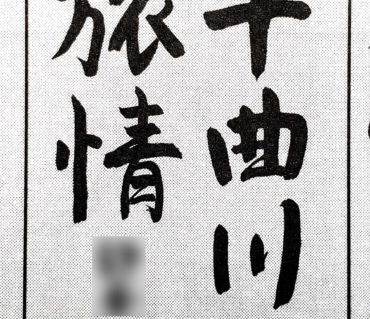 千曲川
旅情